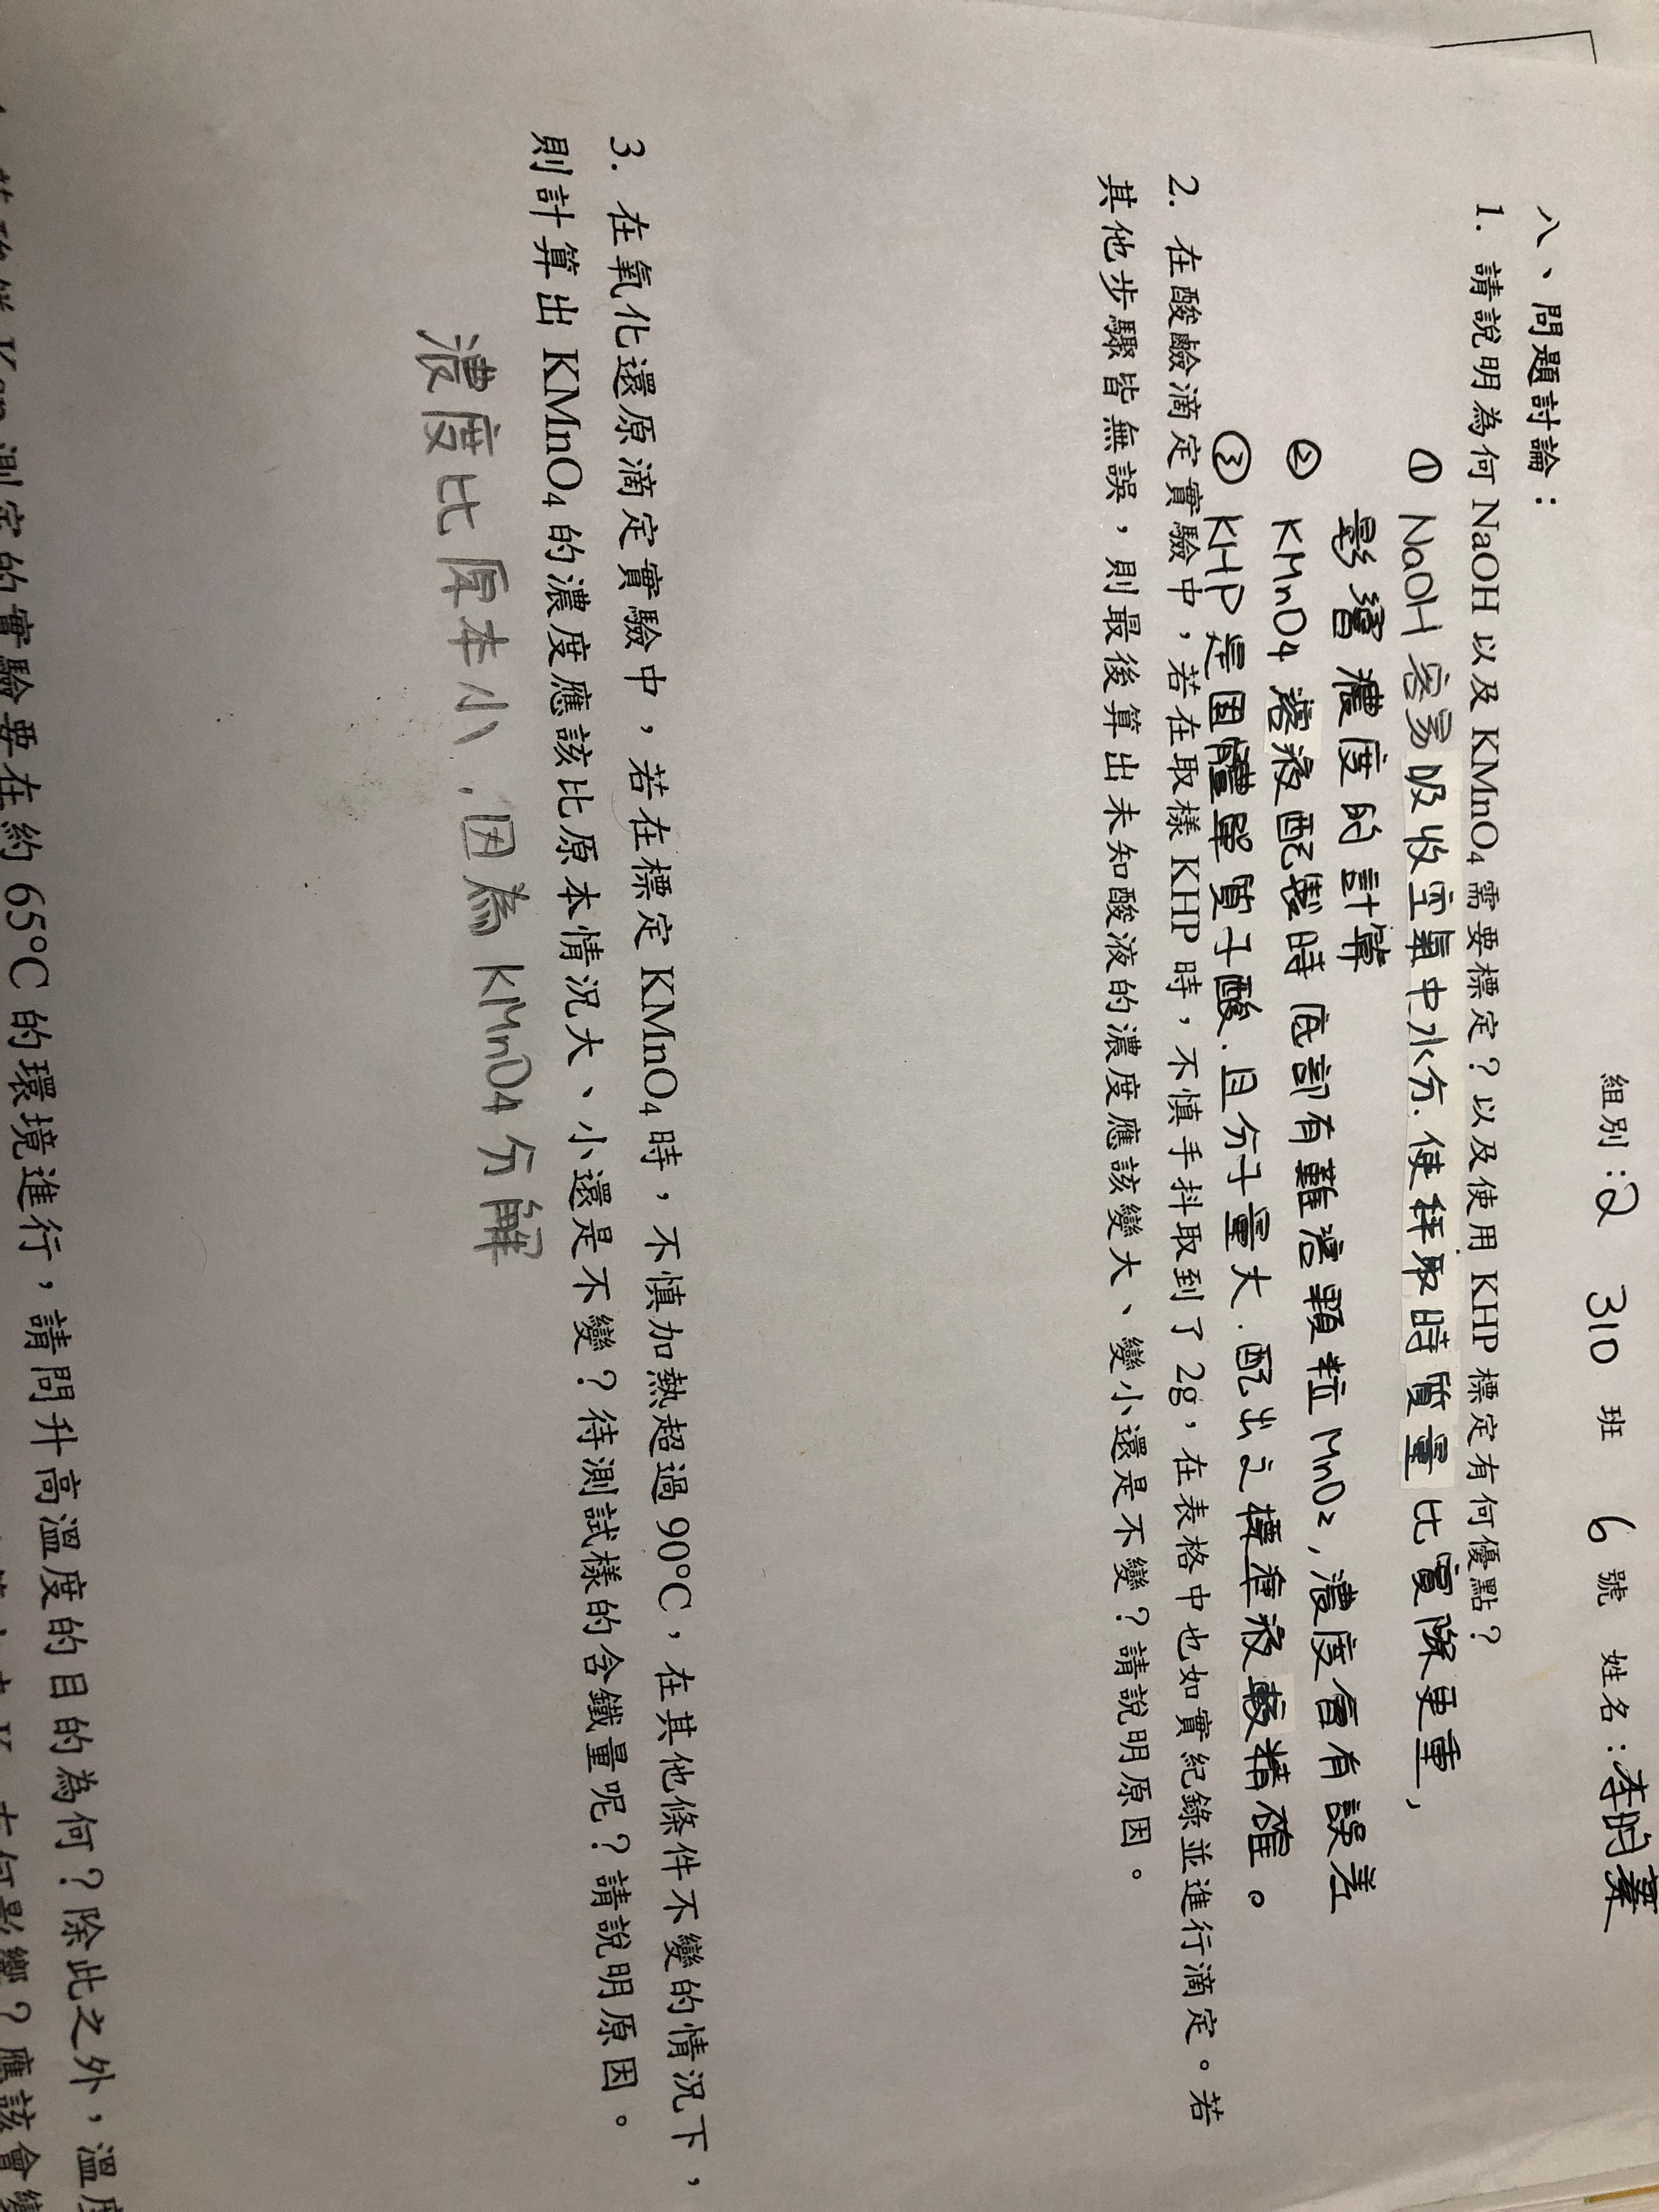 組別：2 310 班 6 號 姓名：李昀蓁
八、問題討論：
1. 請說明為何 NaOH 以及 KMnO4 需要標定？以及使用 KHP 標定有何優點？
① NaOH 容易吸收空氣中水分．使秤取時質量比實際更重，
影響濃度的計算
② KMnO4 溶液配製時底部有難溶顆粒 MnO2，濃度會有誤差
③ KHP 是固體單質子酸．且分子量大．配出之標準液較精確。
2. 在酸鹼滴定實驗中，若在取樣 KHP 時，不慎手抖取到了 2g，在表格中也如實紀錄並進行滴定。若
其他步驟皆無誤，則最後算出未知酸液的濃度應該變大、變小還是不變？請說明原因。
3. 在氧化還原滴定實驗中，若在標定 KMnO4 時，不慎加熱超過 90°C，在其他條件不變的情況下，
則計算出 KMnO4 的濃度應該比原本情況大、小還是不變？待測試樣的含鐵量呢？請說明原因。
濃度比原本小．因為 KMnO4 分解
測定的實驗要在約 65°C 的環境進行，請問升高溫度的目的為何？除此之外，溫度
有何影響？應該會變